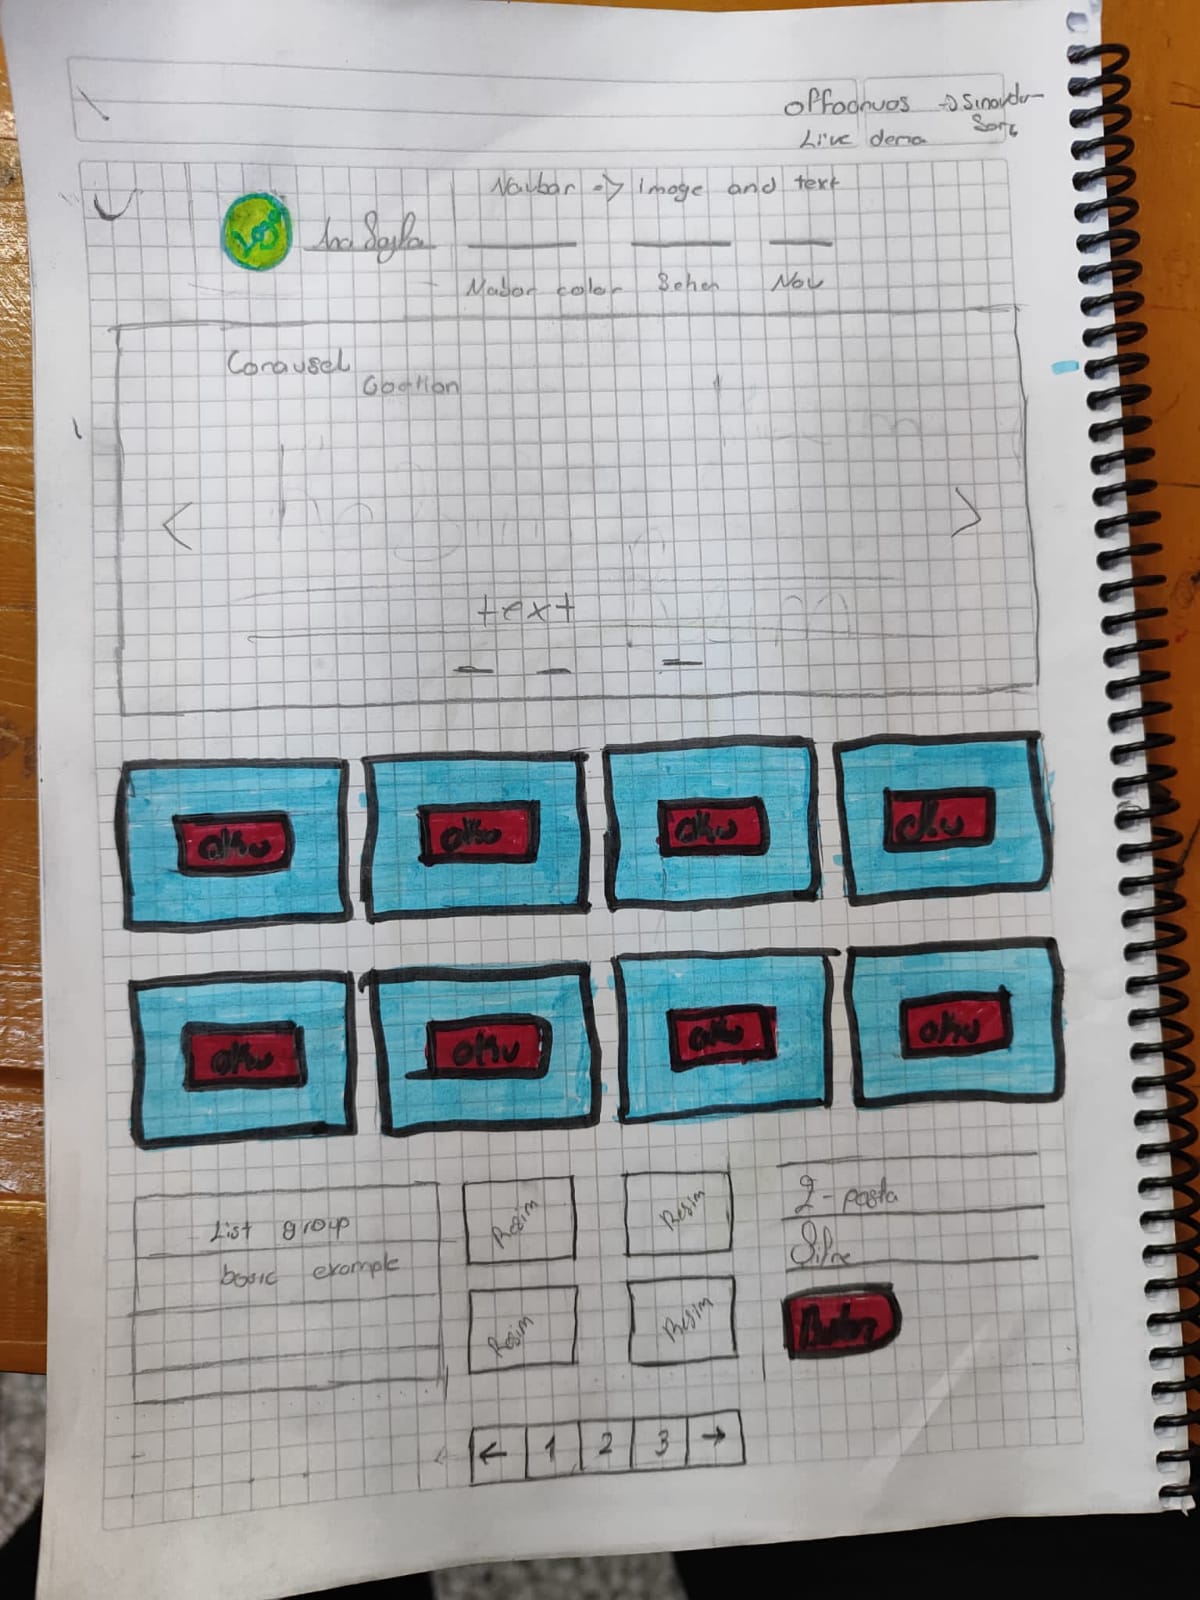 offcanvas → Sınavda
Soru
Live demo
Navbar => image and text
Logo Ana Sayfa
Nabar color Schem Nav
Carousel
< >
text
oku oku oku oku
oku oku oku oku
List group
basic example
Resim Resim
Resim Resim
E-posta
Şifre
Buton
← 1 2 3 →